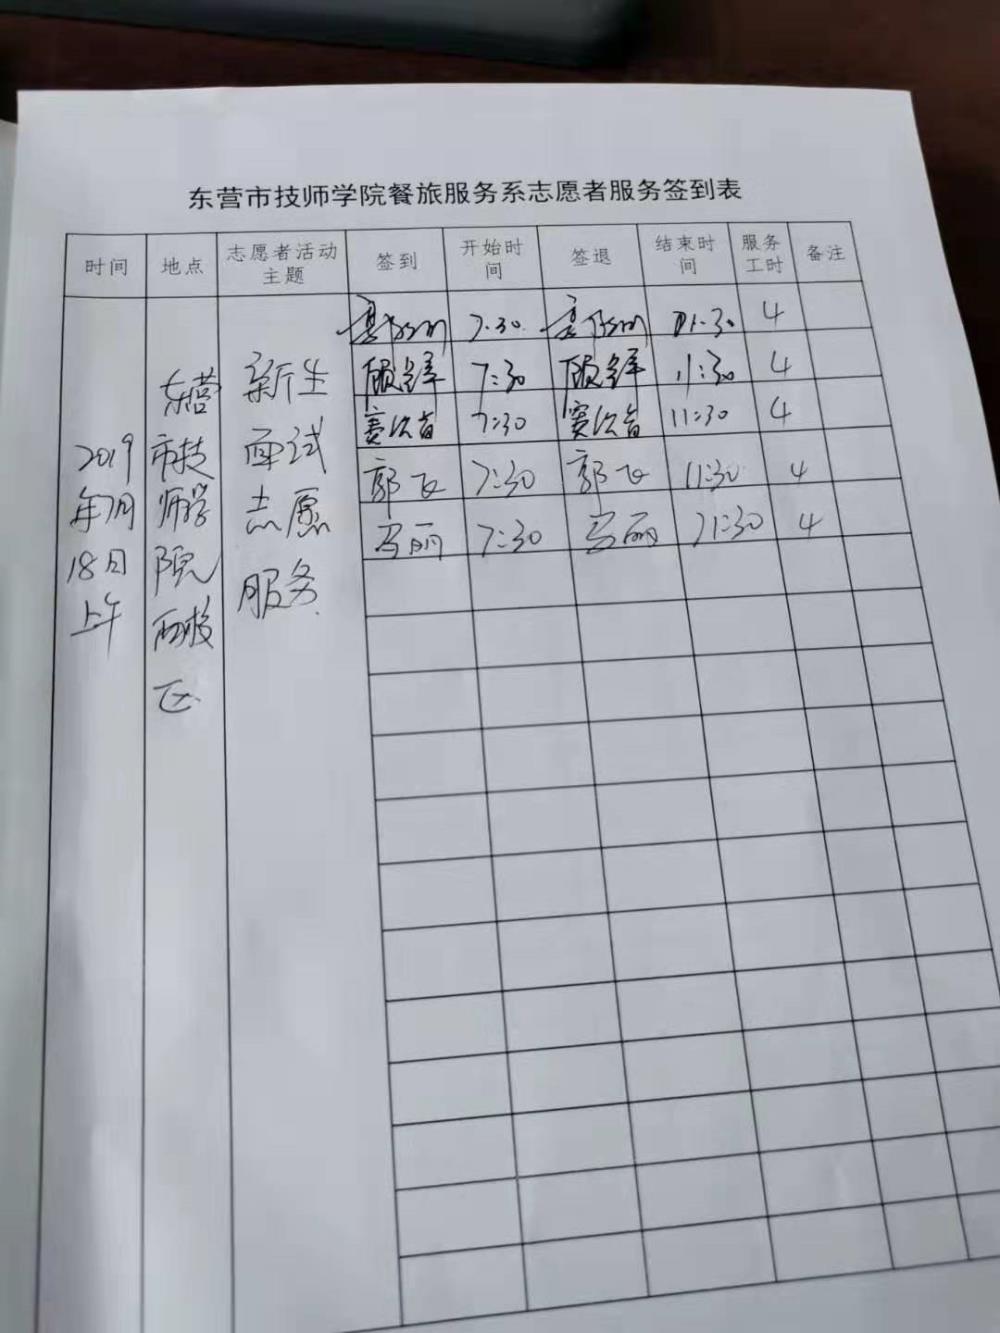 东营市技师学院餐旅服务系志愿者服务签到表
时间 地点 志愿者活动主题 签到 开始时间 签退 结束时间 服务工时 备注
2019年7月18日上午
东营市技师学院西校区
新生面试志愿服务
7:30 11:30 4
7:30 11:30 4
7:30 11:30 4
郭飞 7:30 郭飞 11:30 4
马丽 7:30 马丽 11:30 4